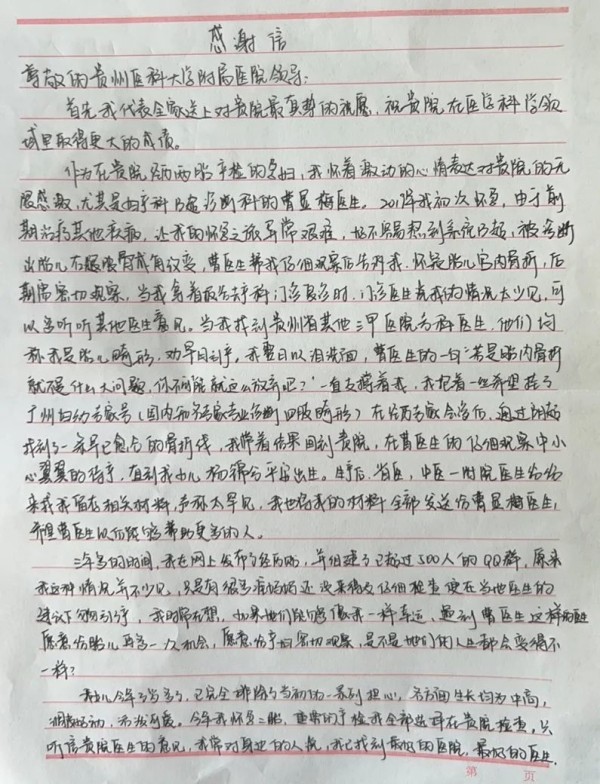 感谢信
尊敬的贵州医科大学附属医院领导:
首先我代表全家送上对贵院最真挚的祝愿,祝贵院在医学科学领
域里取得更大的成绩。
作为在贵院经历两胎产检的孕妇,我怀着激动的心情表达对贵院的无
限感激,尤其是妇产科B超诊断科的曹显梅医生。我初次怀孕,由于前
期治疗其他疾病,让我的怀孕之旅异常艰难,好不容易熬到系统B超,被诊断
出胎儿右腿腿骨成角改变,曹医生帮我仔细观察后告对我,怀疑胎儿宫内骨折,后
期需密切观察,当我拿着报告去产科门诊复诊时,门诊医生说我的情况太少见,可
以多听听其他医生意见。当我找到贵州省其他三甲医院各科医生,他们均
称我是胎儿畸形,劝早日引产,我整日以泪洗面,曹医生的一句“若是胎内骨折
就不是什么大问题,你不能就这么放弃吧?”一直支撑着我,我抱着一丝希望挂了
广州妇幼专家号(国内知名专家专业诊断四肢畸形)在经过专家会诊后,通过阴超
找到了一条早已愈合的骨折线,我带着结果回到贵院,在曹医生的仔细观察中小
心翼翼的待产,直到我女儿杨平安出生。生产后,省医,中医一附院医生纷纷
来我留存相关材料,声称太罕见,我也将我的材料全部发送给曹显梅医生,
希望曹医生以后能够帮助更多的人。
三年多的时间,我在网上发布了经历贴,并组建了已超过500人的QQ群,原来
我这种情况并不少见,只是有很多准妈妈还没来得及仔细检查便在当地医生的
建议下匆匆引产,我时常在想,如果她们能够像我一样幸运,遇到曹医生这样的医生
愿意给胎儿再多一次机会,愿意给孕妇密切观察,是不是她们的人生都会变得不
一样?
我女儿今年3岁多了,已完全排除了当初的一系列担心,各方面生长均为中高,
活泼好动,。今年我怀孕二胎,建档产检我全部选择在贵院检查,只
听信贵院医生的意见,我常对身边的人说,我已找到最好的医院,最好的医生.
第 页